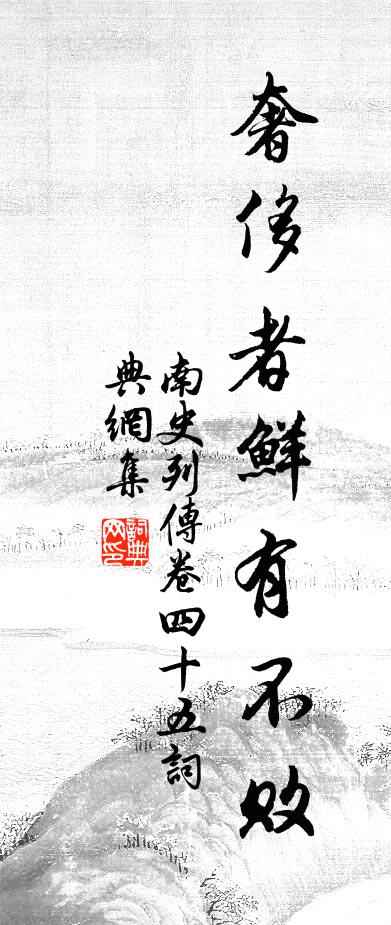 奢侈者鮮有不敗
南史列傳卷四十五詞
典網集
詞典網印